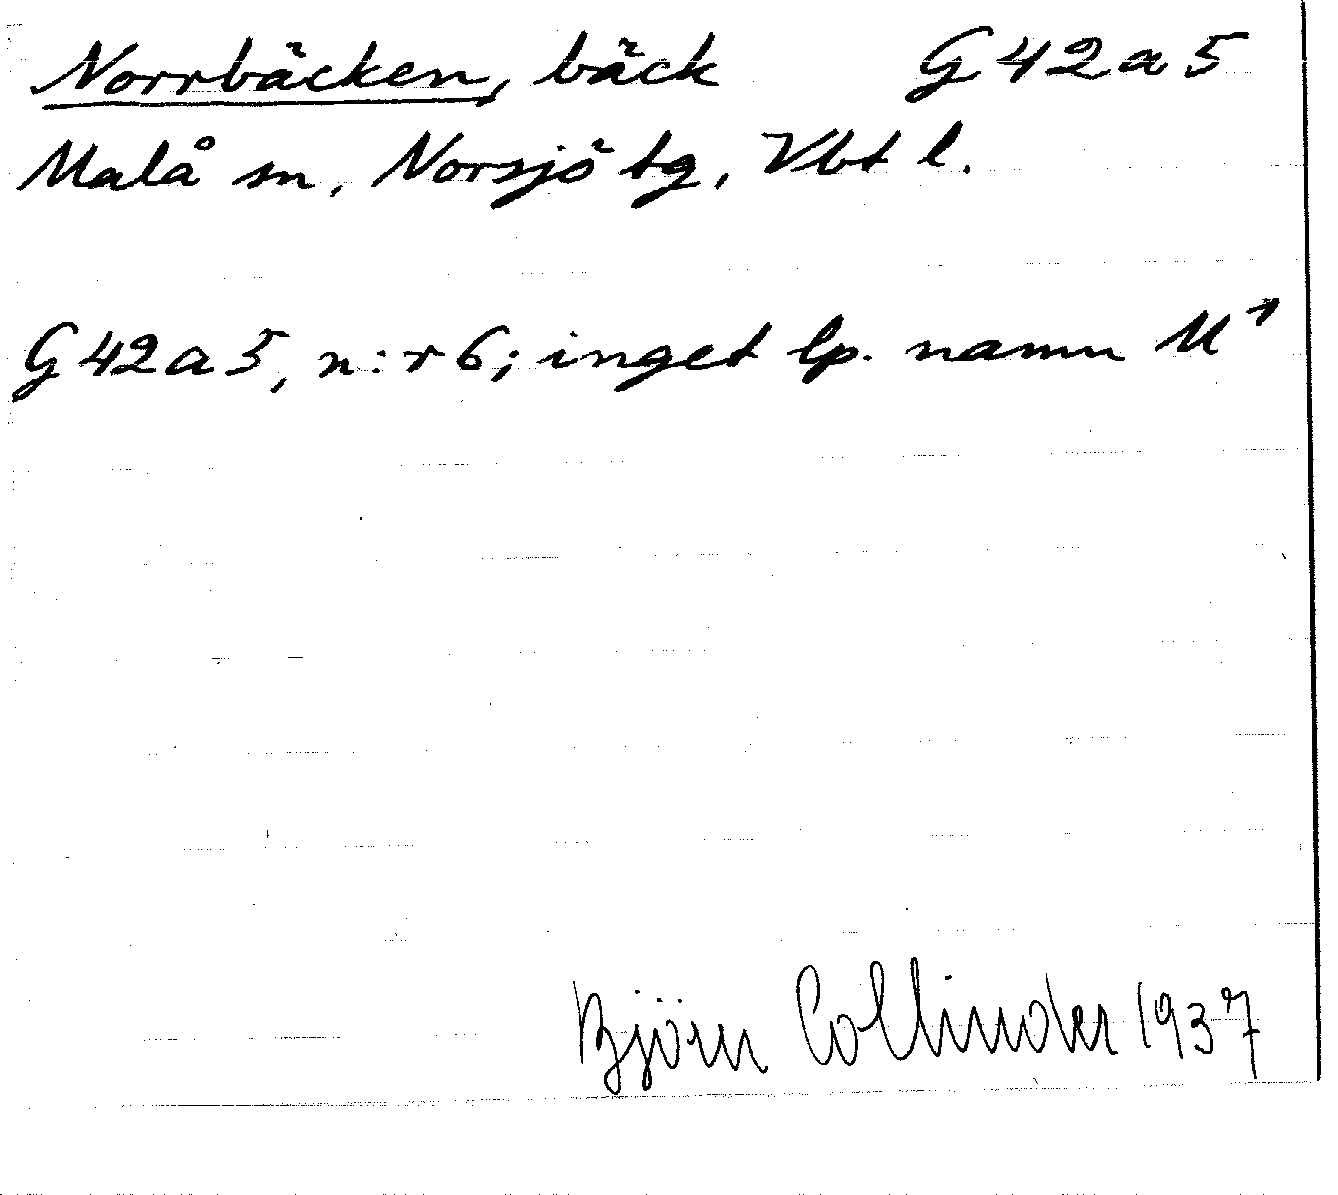 Norrbäcken, bäck G42a5
Malå sn, Norsjö tg, Vbt l.
G42a5, n:r 6; inget lp. namn M¹
Björn Collinder 1937